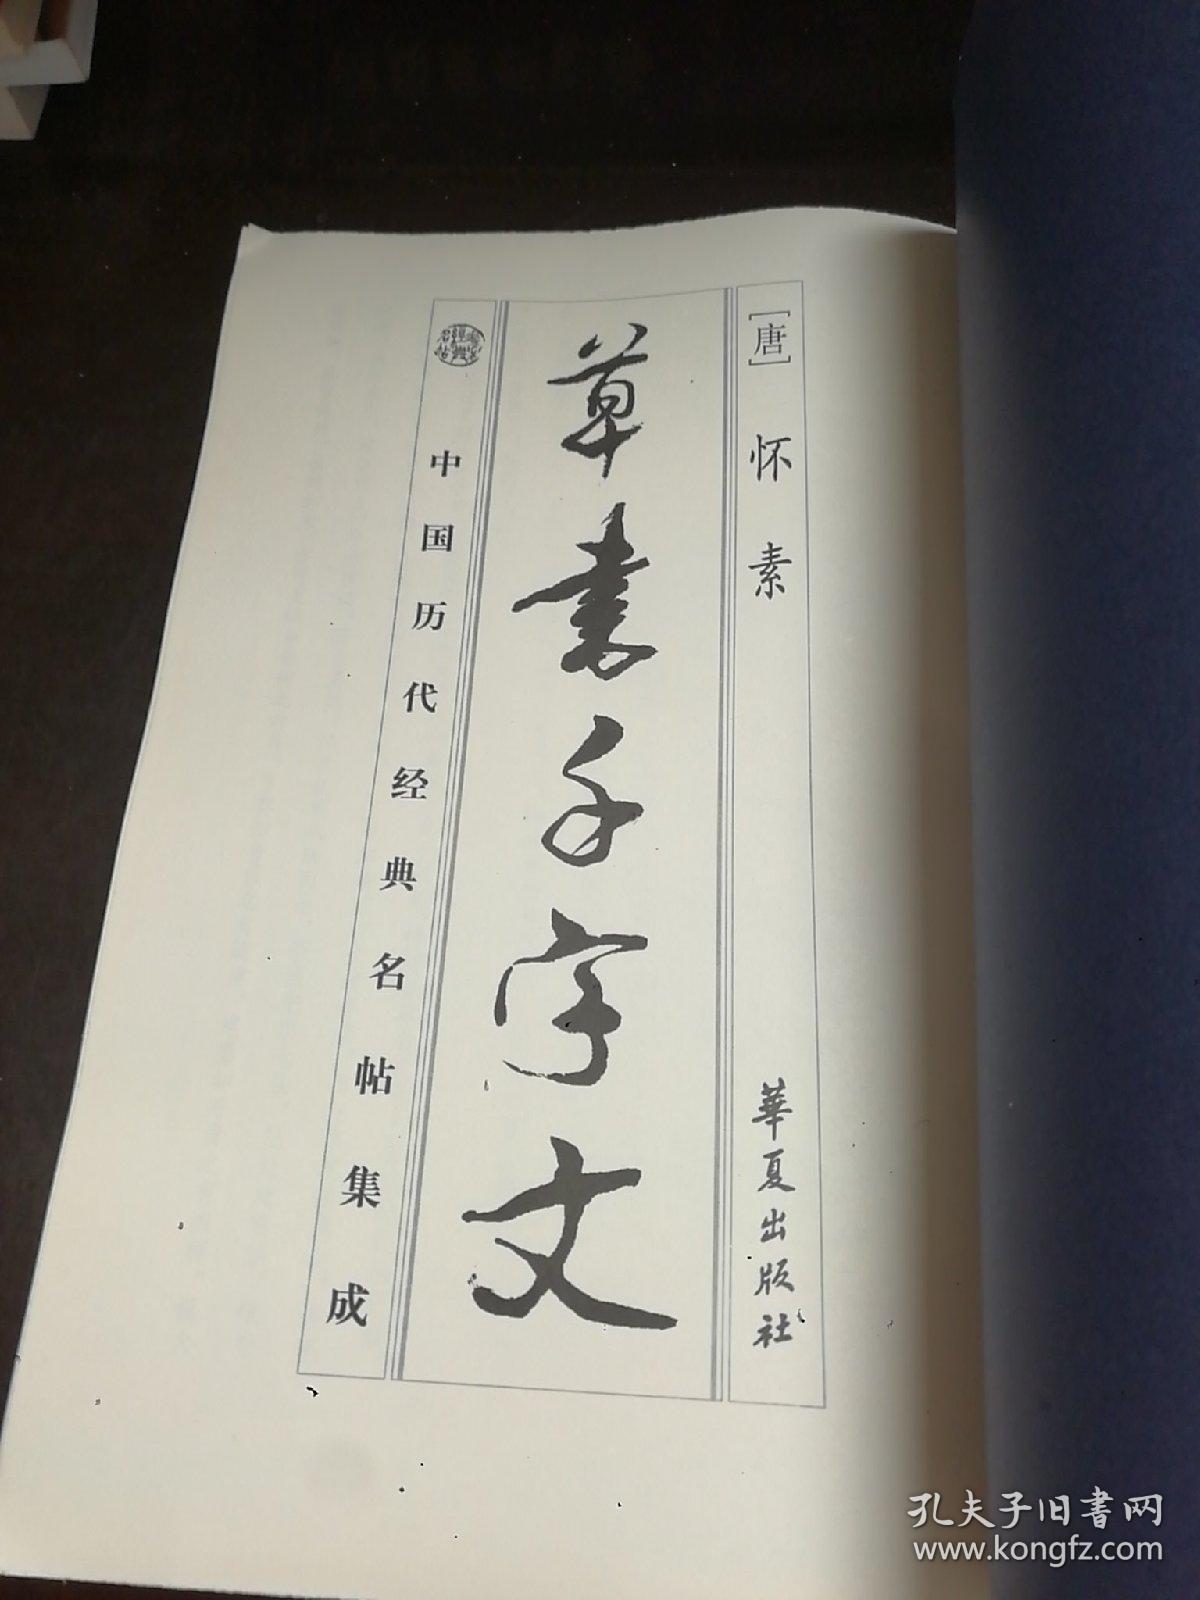 [唐] 怀素
華夏出版社
草书千字文
中国历代经典名帖集成
孔夫子旧書网
www.kongfz.com